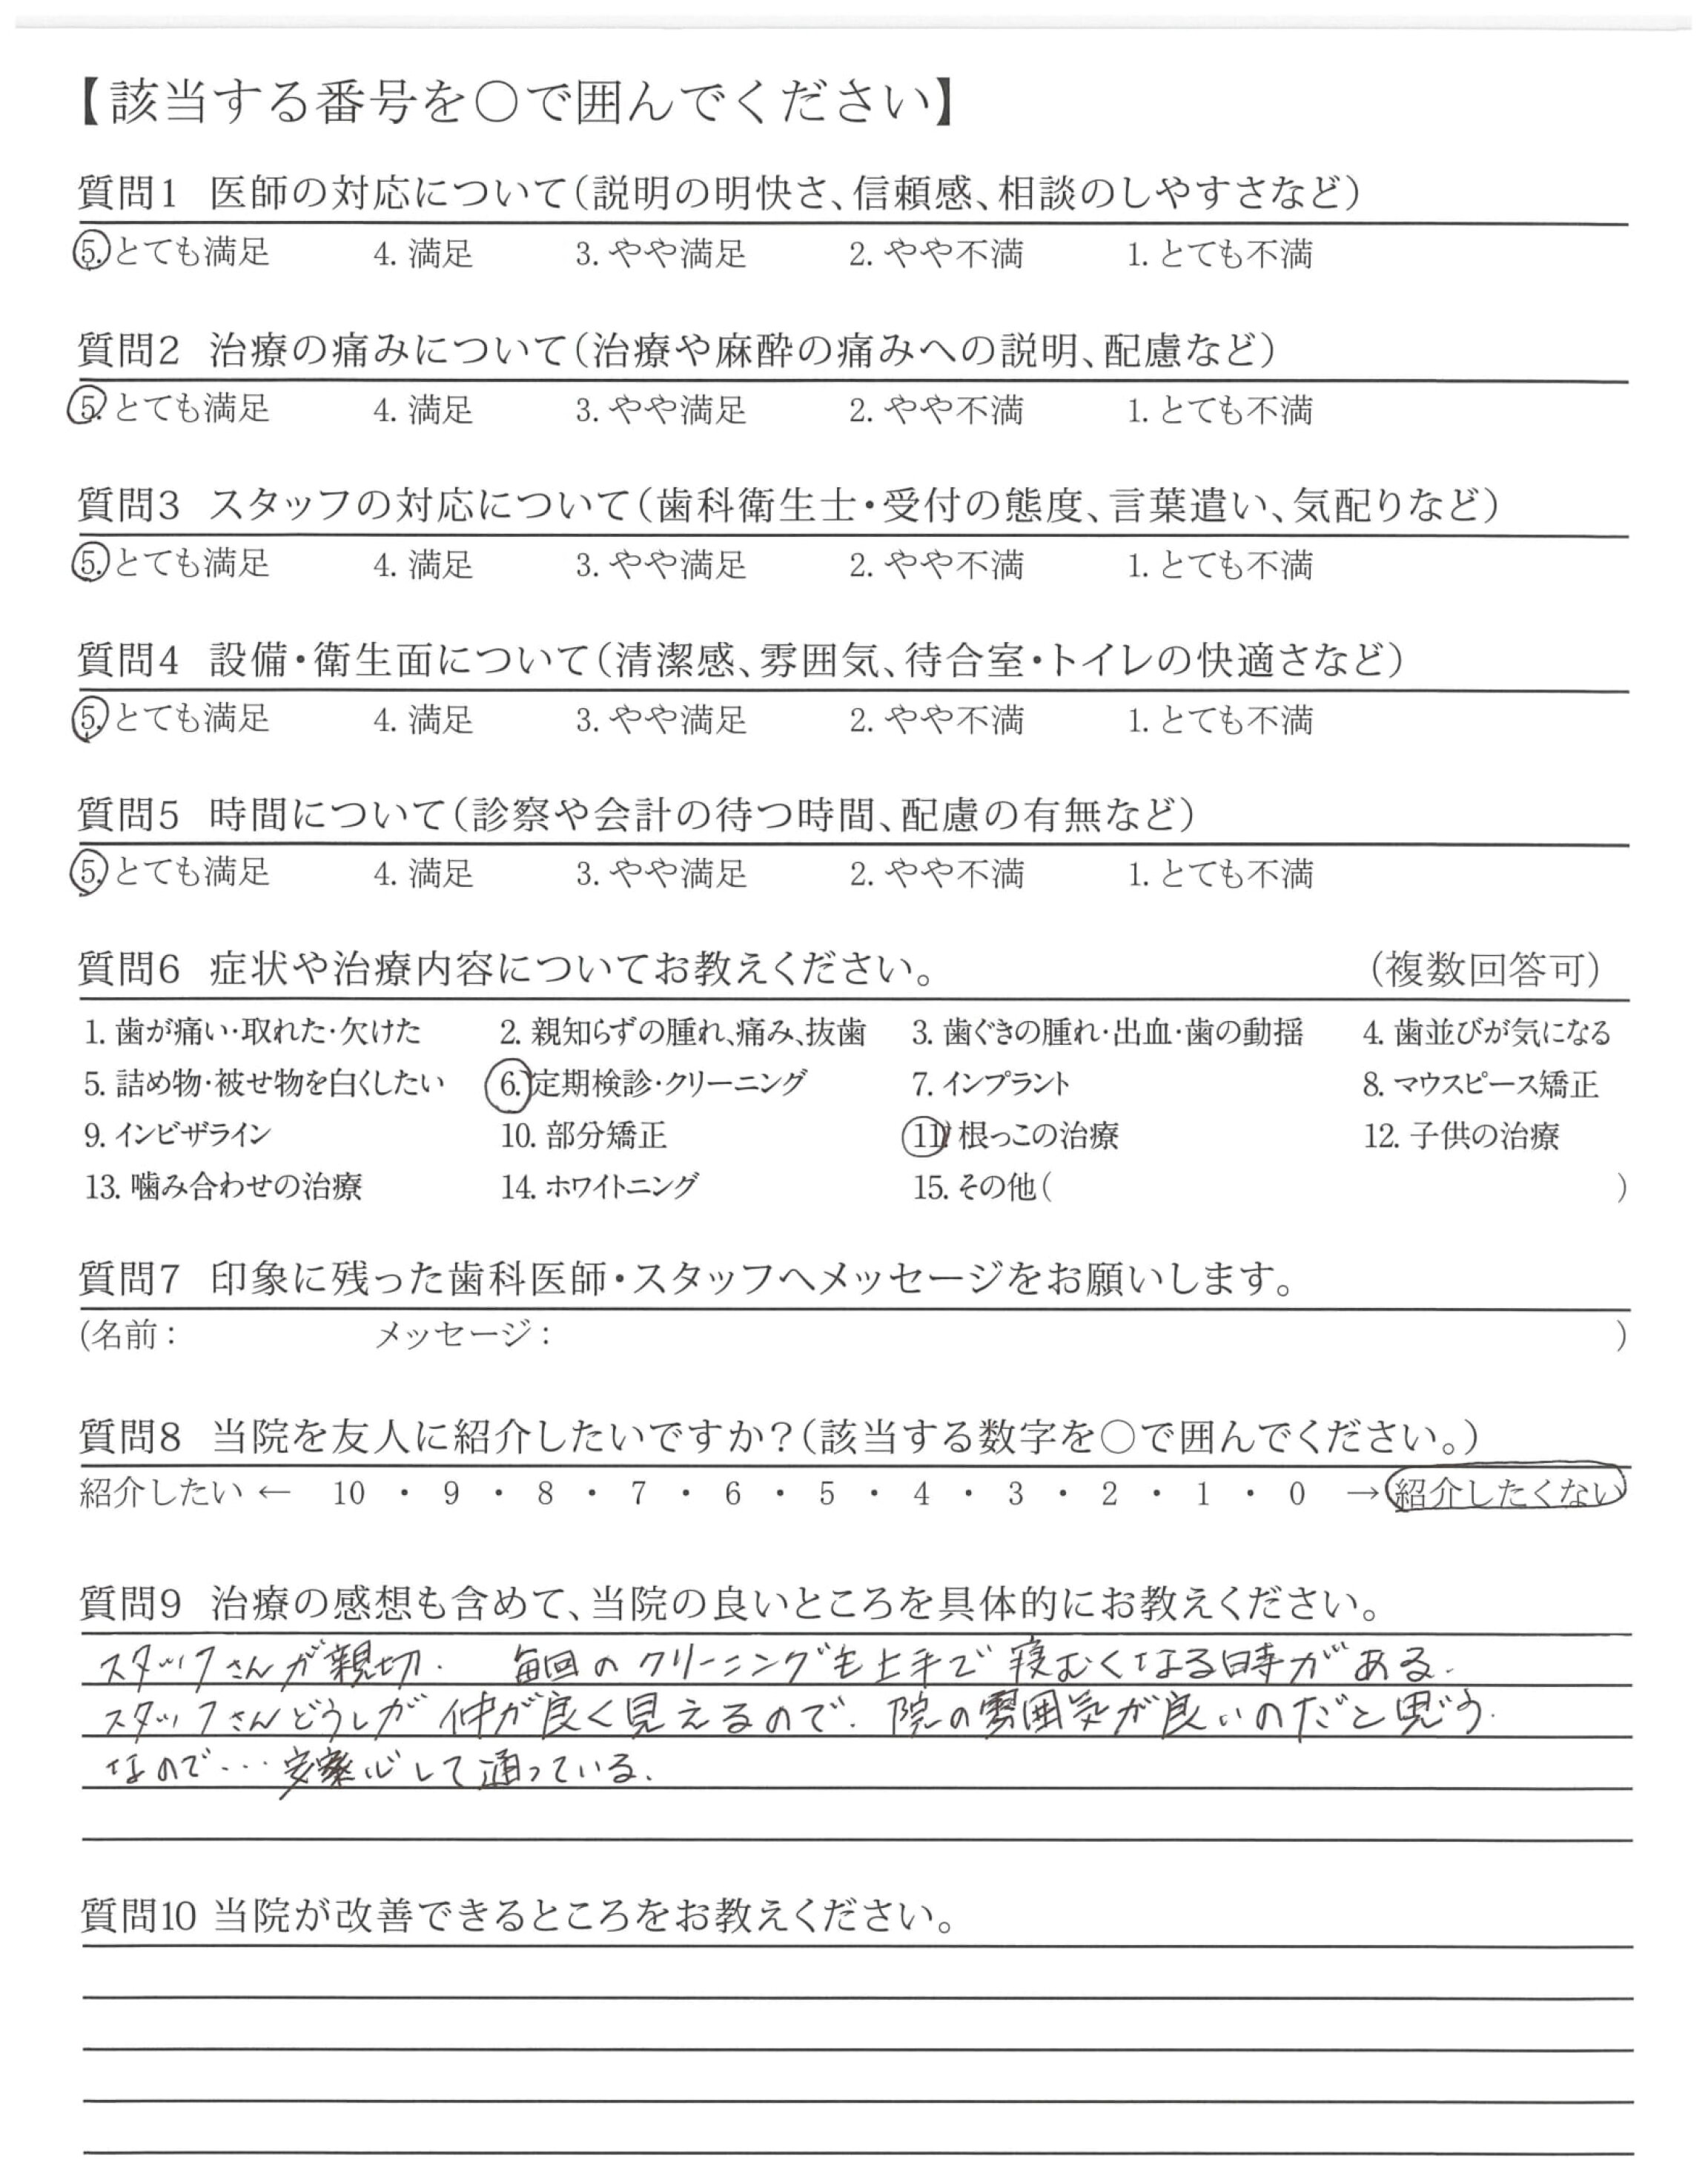 【該当する番号を○で囲んでください】
質問1 医師の対応について(説明の明快さ、信頼感、相談のしやすさなど)
5. とても満足 4. 満足 3. やや満足 2. やや不満 1. とても不満
質問2 治療の痛みについて(治療や麻酔の痛みへの説明、配慮など)
5. とても満足 4. 満足 3. やや満足 2. やや不満 1. とても不満
質問3 スタッフの対応について(歯科衛生士・受付の態度、言葉遣い、気配りなど)
5. とても満足 4. 満足 3. やや満足 2. やや不満 1. とても不満
質問4 設備・衛生面について(清潔感、雰囲気、待合室・トイレの快適さなど)
5. とても満足 4. 満足 3. やや満足 2. やや不満 1. とても不満
質問5 時間について(診察や会計の待つ時間、配慮の有無など)
5. とても満足 4. 満足 3. やや満足 2. やや不満 1. とても不満
質問6 症状や治療内容についてお教えください。 (複数回答可)
1. 歯が痛い・取れた・欠けた 2. 親知らずの腫れ、痛み、抜歯 3. 歯ぐきの腫れ・出血・歯の動揺 4. 歯並びが気になる
5. 詰め物・被せ物を白くしたい 6. 定期検診・クリーニング 7. インプラント 8. マウスピース矯正
9. インビザライン 10. 部分矯正 11. 根っこの治療 12. 子供の治療
13. 噛み合わせの治療 14. ホワイトニング 15. その他( )
質問7 印象に残った歯科医師・スタッフへメッセージをお願いします。
(名前: メッセージ: )
質問8 当院を友人に紹介したいですか?(該当する数字を○で囲んでください。)
紹介したい ← 10 ・ 9 ・ 8 ・ 7 ・ 6 ・ 5 ・ 4 ・ 3 ・ 2 ・ 1 ・ 0 → 紹介したくない
質問9 治療の感想も含めて、当院の良いところを具体的にお教えください。
スタッフさんが親切. 毎回のクリーニングも上手で寝むくなる時がある.
スタッフさんどうしが仲が良く見えるので. 院の雰囲気が良いのだと思う.
なので…安心して通っている.
質問10 当院が改善できるところをお教えください。